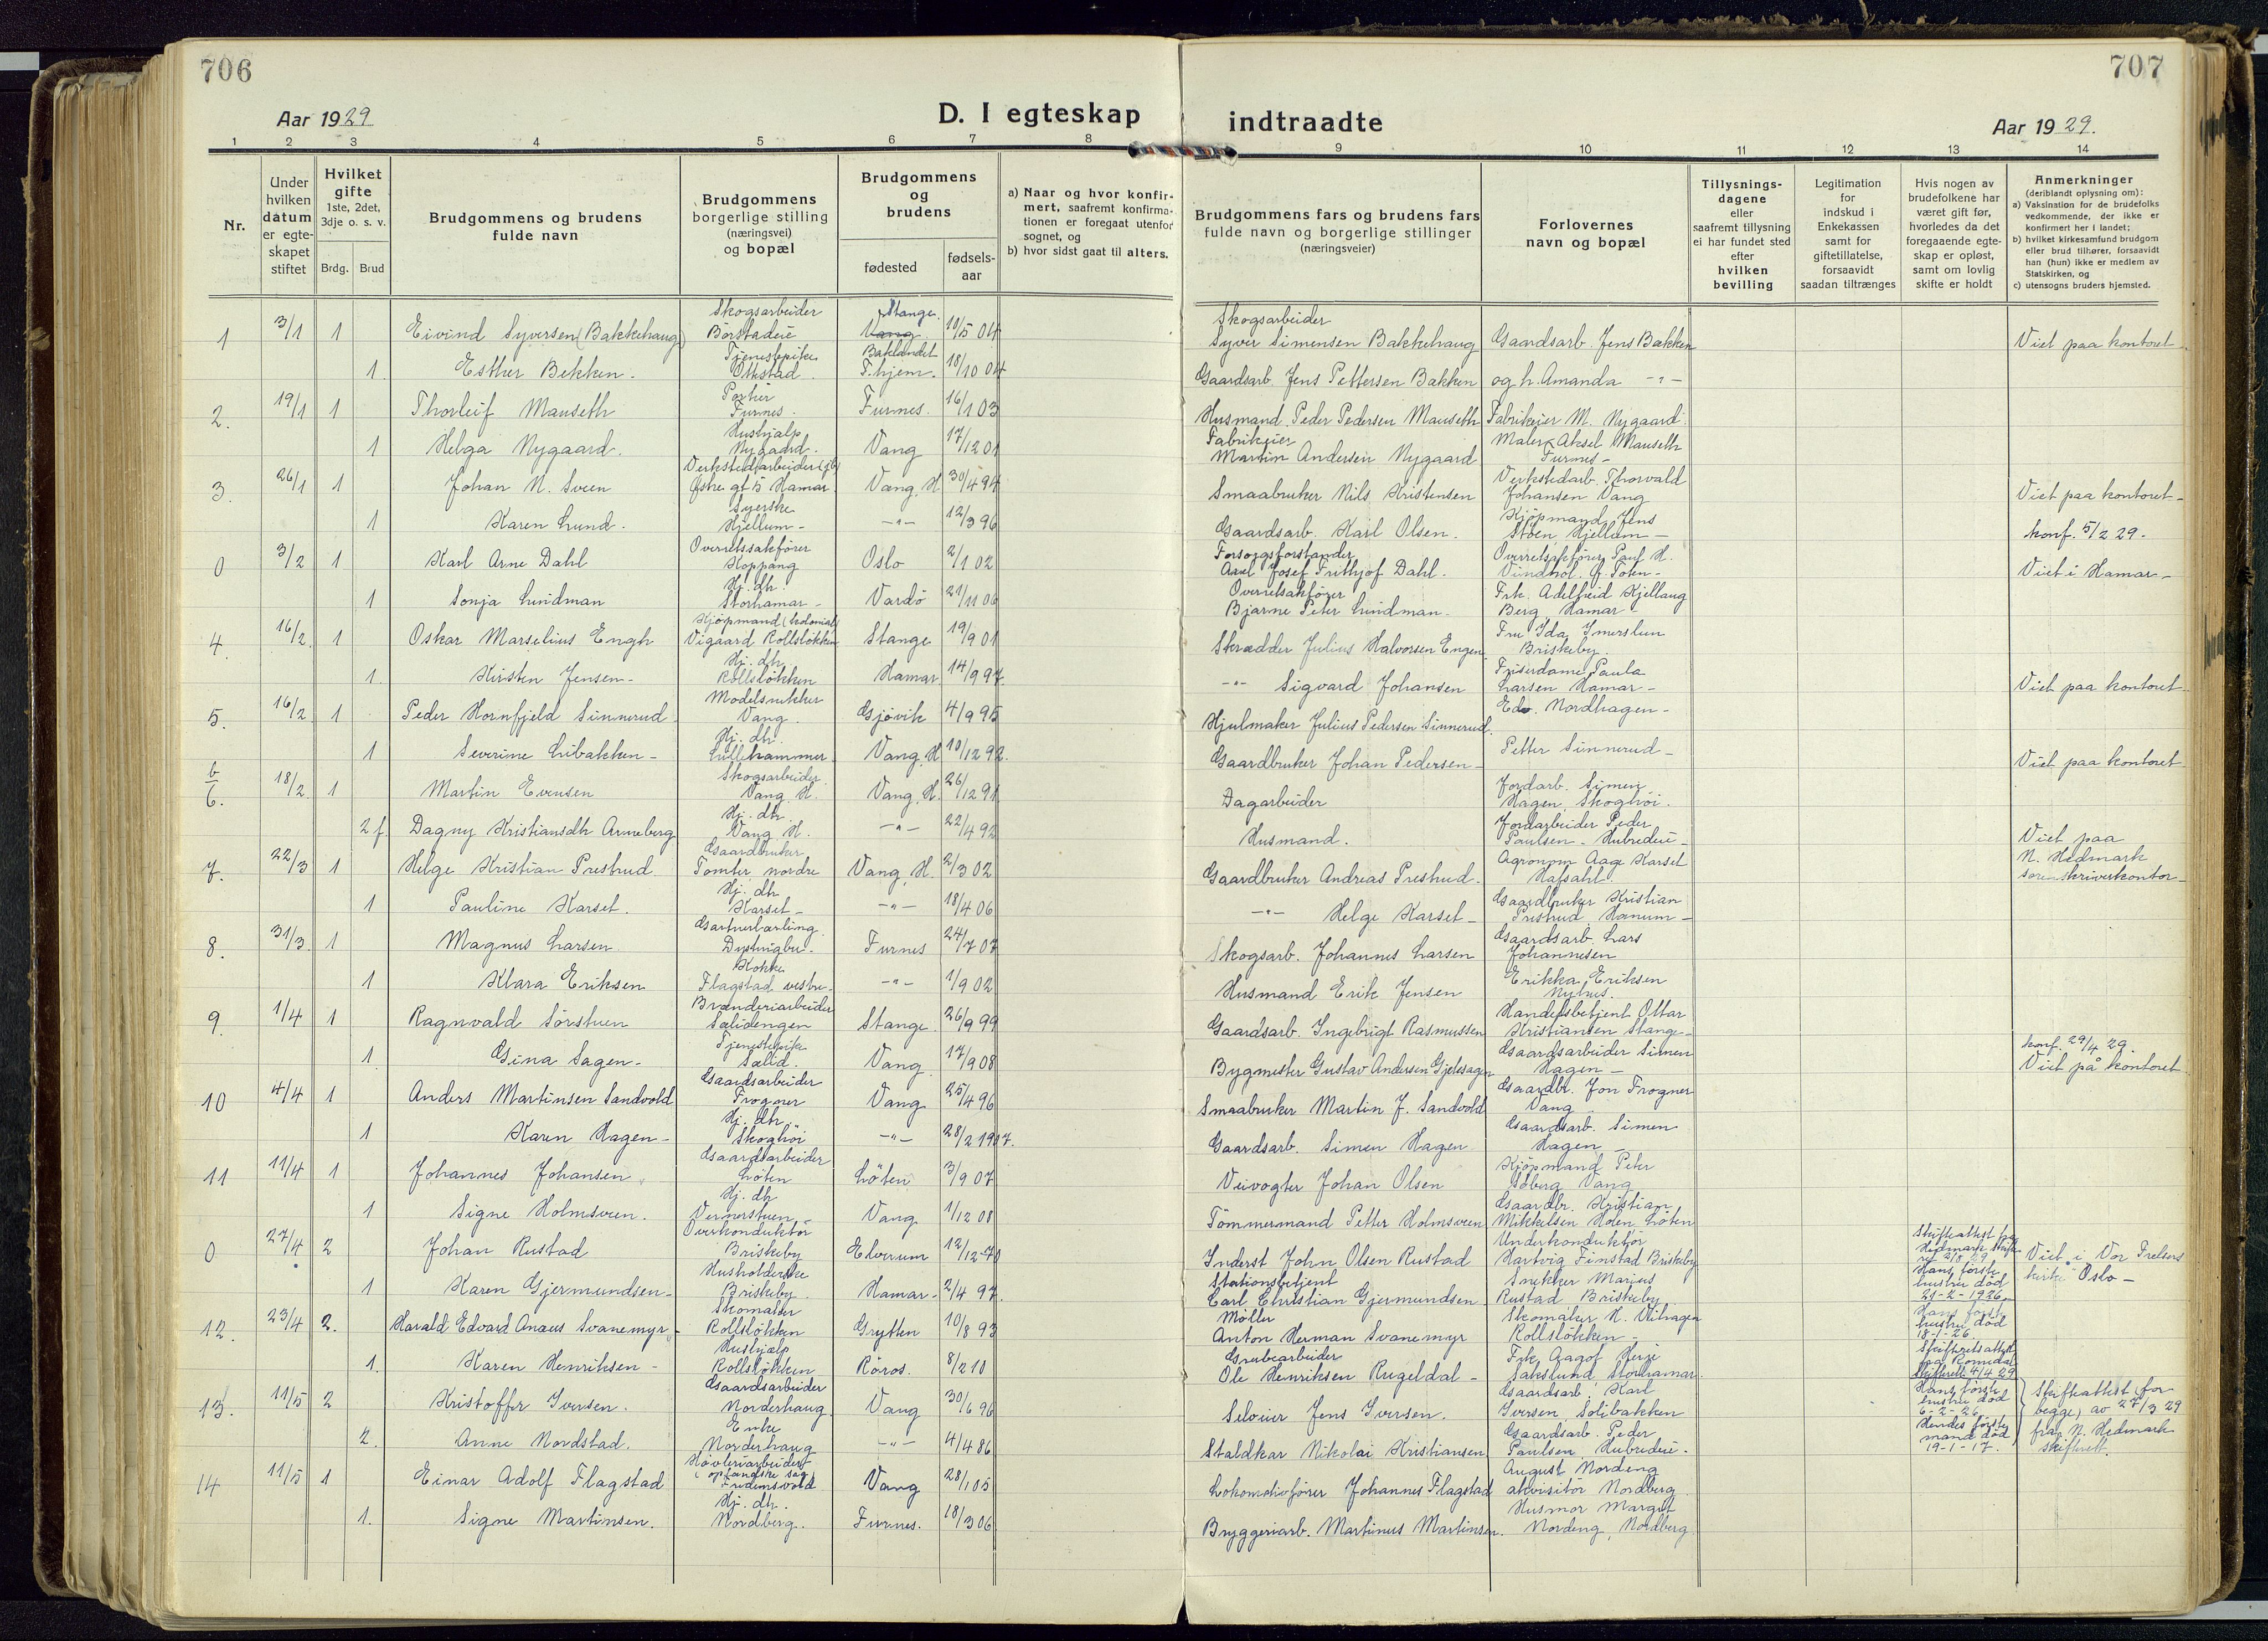 706
707
Aar 1929
D. I egteskap indtraadte
Aar 1929.
1 2 3 4 5 6 7 8 9 10 11 12 13 14
Nr.
Under hvilken datum er egteskapet stiftet
Hvilket gifte 1ste, 2det, 3dje o. s. v.
Brdg. Brud
Brudgommens og brudens fulde navn
Brudgommens borgerlige stilling (næringsvei) og bopæl
Brudgommens og brudens
fødested
fødsels-aar
a) Naar og hvor konfirmert, saafremt konfirmationen er foregaat utenfor sognet, og
b) hvor sidst gaat til alters.
Brudgommens fars og brudens fars fulde navn og borgerlige stillinger (næringsveier)
Forlovernes navn og bopæl
Tillysningsdagene eller saafremt tillysning ei har fundet sted efter hvilken bevilling
Legitimation for indskud i Enkekassen samt for giftetillatelse, forsaavidt saadan tiltrænges
Hvis nogen av brudefolkene har været gift før, hvorledes da det foregaaende egteskap er opløst, samt om lovlig skifte er holdt
Anmerkninger (deriblandt oplysning om):
a) Vaksination for de brudefolks vedkommende, der ikke er konfirmert her i landet;
b) hvilket kirkesamfund brudgom eller brud tilhører, forsaavidt han (hun) ikke er medlem av Statskirken, og
c) utensogns bruders hjemsted.
1 3/1 1 Eivind Syversen (Bakkehaug) Skogsarbeider Børstadeie Stange Vang 10/5 04 Skogsarbeider Syver Simensen Bakkehaug Gaardsarb. Jens Bakken Viet paa kontoret
1 Esther Bekken. Tjenestepike Ottestad Baklandet T.hjem. 18/10 04 Gaardsarb. Jens Pettersen Bakken og h. Amanda -"-
2. 19/1 1 Thorleif Mauseth Portier Furnes Furnes. 16/1 03 Husmand Peder Pedersen Mauseth Fabrikeier M. Nygaard.
1 Helga Nygaard. Hushjalp Nygaard. Vang 17/12 01 Fabrikeier Martin Andersen Nygaard Maler Aksel Mauseth Furnes-
3. 26/1 1 Johan N. Sveen Verkstedarbeider Østre gt 5 Hamar Vang, H 30/4 94 Smaabruker Nils Kristensen Verkstedarb. Thorvald Johansen Vang Viet paa kontoret-
1 Karen Lund. Syerske Hjellum- -"- 12/3 96 Gaardsarb. Karl Olsen. Kjøpmand Jens Støen Hjellum- konf. 5/2 29.
0 3/2 1 Karl Arne Dahl Overretssakfører Koppang Oslo 2/1 02 Forsorgsforstander Axel Josef Frithjof Dahl. Overretssakfører Paul H. Viet i Hamar-
1 Sonja Lindman Hj. dtr. Storhamar- Vardö 21/11 06 Overretsakfører Bjarne Peter Lindman- Frk. Adelheid Kjellaug Berg Hamar-
4. 16/2. 1 Oskar Marselius Engh Kjøpmand (kolonial) Vigaard Rollsløkken Stange 19/9 01 Skrædder Julius Halvorsen Engen Fru Ida Imerslun Briskeby.
1. Kirsten Jensen- Hj. dtr. Rollsløkken Hamar 14/9 97. -"- Sigvard Johansen Friserdame Paula Larsen Hamar- Viet paa kontoret
5. 16/2 1 Peder Hornfjeld Sinnerud Modelsnekker Vang. Gjøvik 4/9 95 Hjulmaker Julius Pedersen Sinnerud Edv. Nordhagen-
1 Severine Libakken- Hj. dtr. Lillehammer Vang, H 10/12 92. Gaardbruker Johan Pedersen- Petter Sinnerud- Viet paa kontoret
6. 18/2 1 Martin Evensen Skogsarbeider Vang. H. Vang, H. 26/12 91 Dagarbeider Jordarb. Simen Hagen, Skoghøi.
2 f Dagny Kristiansdtr. Arneberg Hj. dtr. Vang H. -"- 22/4 92 Husmand. Jordarbeider Peder Paulsen- Hubredeie- Viet paa N. Hedmark sorenskriverkontor-
7. 22/3 1 Helge Kristian Prestrud Gaardbruker Tomter nordre Vang, H. 2/3 02 Gaardbruker Andreas Prestrud. Agronom Aage Karset Hafsahl.
1 Pauline Karset. Hj. dtr Karset- -"- 18/4 06 -"- Helge Karset- Gaardbruker Kristian Prestrud Hanum-
8. 31/3. 1 Magnus Larsen Gartnerlærling Dystvigbu. Furnes 24/7 07 Skogsarb. Johannes Larsen Gaardsarb. Lars Johannesen
1 Klara Eriksen Kokke Flagstad vestre- -"- 1/9 02 Husmand Erik Jensen Erikka Eriksen
9. 1/4 1 Ragnvald Sörstuen Brænderiarbeider Sælidengen Stange 26/9 99 Gaardsarb. Ingebrigt Rasmussen Handelsbetjent Ottar Kristiansen Stange-
1. Gina Sagen- Tjenestepike Sælid. Vang 17/9 08 Bygmester Gustav Andersen Gjetesagen Gaardsarbeider Simen Hagen- konf. 29/4 29. Viet på kontoret
10 4/4 1 Anders Martinsen Sandvold Gaardsarbeider Frogner Vang 25/4 96 Smaabruker Martin J. Sandvold Gaardbr. Jon Frogner Vang
1 Karen Hagen- Hj. dtr. Skoghöi -"- 28/2 1907. Gaardsarb. Simen Hagen Gaardsarb. Simen Hagen-
11 11/4 1 Johannes Johansen Gaardsarbeider Löten Löten 3/9 07 Veivogter Johan Olsen Kjøpmand Peter Søberg Vang
1 Signe Holmsveen. Hj. dtr Vermerstuen- Vang 1/12 08 Tømmermand Petter Holmsveen Gaardbr. Kristian Mikkelsen Holen Løten
0 27/4 2 Johan Rustad Overkonduktør Briskeby Elverum 12/12-70 Inderst John Olsen Rustad Underkonduktør Hartvig Finstad Briskeby Skifteattest fra Hedmark skifteret 2/3 29 Hans første hustru død 21-2-1926. Viet i Vor Frelsers kirke Oslo-
1 Karen Gjermundsen- Husholderske Briskeby Hamar- 2/4 97. Stationsbetjent Carl Christian Gjermundsen Snekker Marius Rustad Briskeby
12. 23/4 2. Harald Edvard Anæus Svanemyr- Skomaker Rollsløkken Grytten 10/8 93 Møller Anton Herman Svanemyr Skomaker H. Vithagen Rollsløkken- Hans første hustru død 18-1-26. Skifteretsattest fra Romedal skifteret 4/4 29
1. Karen Henriksen- Hushjælp Rollsløkken Röros. 8/2 10 Grubearbeider Ole Henriksen Rugeldal- Frk. Aagot Herje Sakslund, Storhamar.
13. 11/5 2 Kristoffer Iversen. Gaardsarbeider Norderhaug Vang 30/6 96 Seloier Jens Iversen. Gaardsarb. Karl Iversen, Solibakken Hans første hustru død 6-2-26 Skifteattest for begge, av 27/3 29 fra N. Hedmark skifterett.
2. Anne Nordstad. Enke Norderhaug -"- 4/4 86 Staldkar Nikolai Kristiansen Gaardsarb. Peder Paulsen, Hubredeie. Hendes første mand død 19-1-17.
14 11/5 1 Einar Adolf Flagstad Høvleriarbeider Vang 28/1 05 Lokomotivfører Johannes Flagstad August Nordeng akvisitör Nordberg
1. Signe Martinsen. Hj. dtr. Nordberg. Furnes. 10/3 06 Bryggeriarb. Martinus Martinsen. Husmor Margit Nordeng, Nordberg